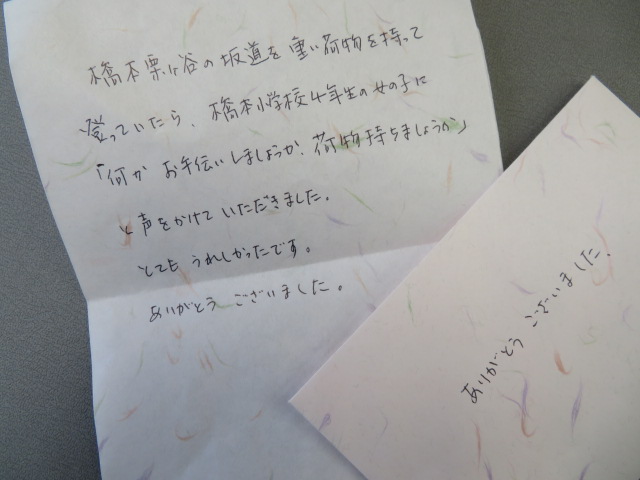 橋本栗ヶ谷の坂道を重い荷物を持って
登っていたら、橋本小学校4年生の女の子に
「何か お手伝いしましょうか、荷物持ちましょうか」
と声をかけていただきました。
とても うれしかったです。
ありがとう ございました。
ありがとう ございました。